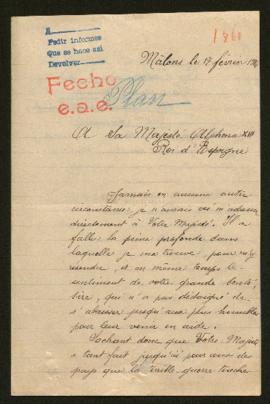 A
Pedir informes
Que se hace así
Devolver
1861
Fecho
e.a.e.
Plan
Mâlons le 17 février
A Sa Majesté Alphonse XIII
Roi d'Espagne
Jamais en aucune autre
circonstance je n'aurais osé m'adresser
directement à Votre Majesté. Il a
fallu la peine profonde dans
laquelle je me trouve, pour m'y
résoudre, et en même temps le
sentiment de votre grande bonté,
Sire, qui n'a pas dédaigné de
s'abaisser jusqu'aux plus humbles
pour leur venir en aide.
Sachant donc que Votre Majesté
a tant fait jusqu'ici pour ceux du
pays que la terrible guerre touche